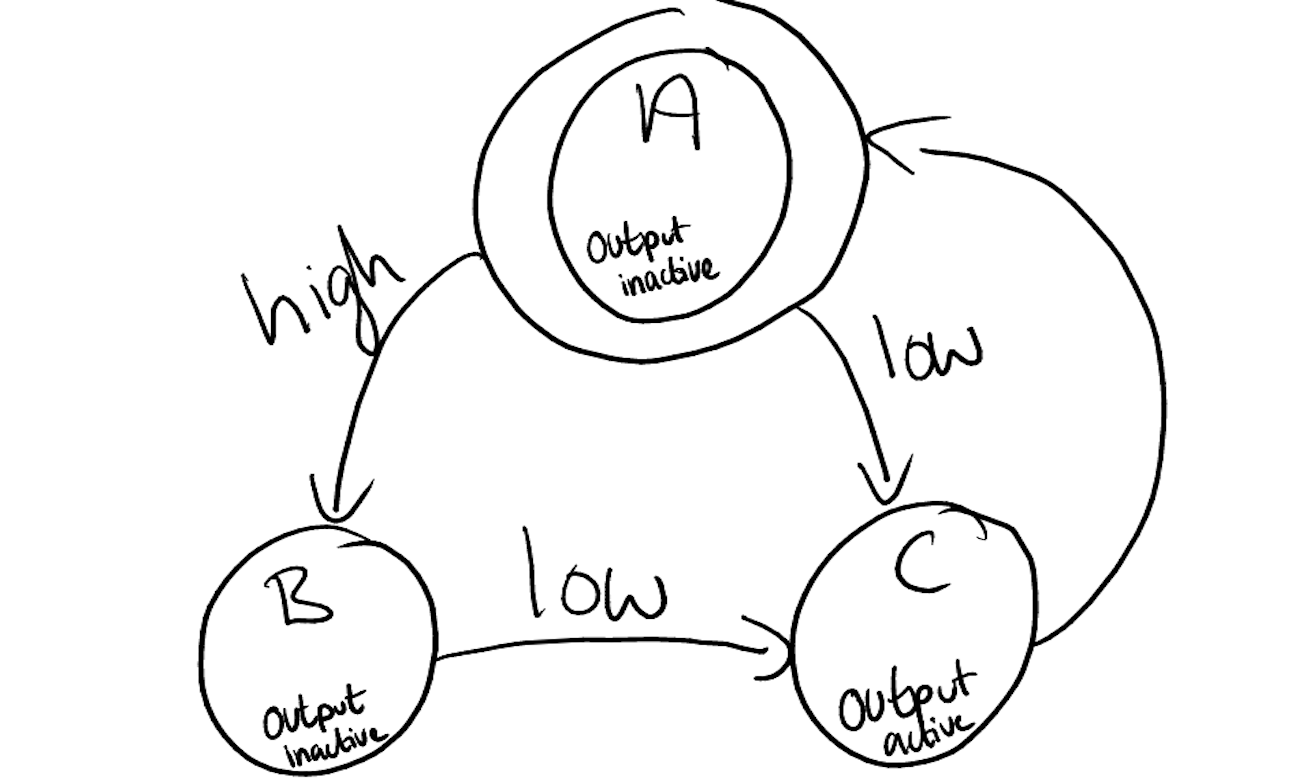 A
Output
inactive
high
low
B
Output
inactive
low
C
Output
active